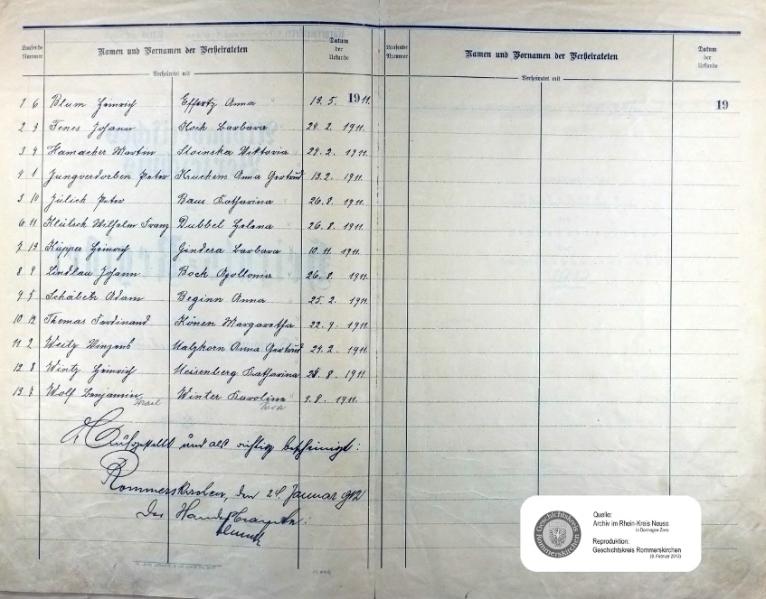 Laufende Nummer Namen und Vornamen der Verheirateten Datum der Urkunde
Verheiratet mit
1 6 Blum Heinrich Effertz Anna 13. 5. 1911.
2 3 Fenes Johann Hock Barbara 24. 2. 1911.
3 4 Hamacher Martin Sloinska Viktoria 24. 2. 1911.
4 1 Jungverdorben Peter Kruchem Anna Gertrud 13. 2. 1911.
5 10 Jülich Peter Baus Katharina 26. 8. 1911.
6 11 Klütsch Wilhelm Franz Dubbel Helena 26. 8. 1911.
7 13 Küpper Heinrich Gindera Barbara 10. 11. 1911.
8 9 Lindlau Johann Bock Apollonia 26. 8. 1911.
9 5 Schäbeth Adam Beginn Anna 25. 2. 1911.
10 12 Themas Ferdinand Könen Margaretha 22. 9. 1911.
11 2 Weitz Vinzens Malzkorn Anna Gertrud 24. 2. 1911.
12 8 Wintz Heinrich Meisenberg Katharina 21. 8. 1911.
13 7 Wolf Benjamin Winter Karoline 9. 8. 1911.
Israel Sara
Aufgestellt und als richtig bescheinigt:
Rommerskirchen, den 24. Januar 1912
Der Standesbeamte:
Laufende Nummer Namen und Vornamen der Verheirateten Datum der Urkunde
Verheiratet mit
19
Geschichtskreis Rommerskirchen
Quelle:
Archiv im Rhein-Kreis Neuss
in Dormagen Zons
Reproduktion:
Geschichtskreis Rommerskirchen